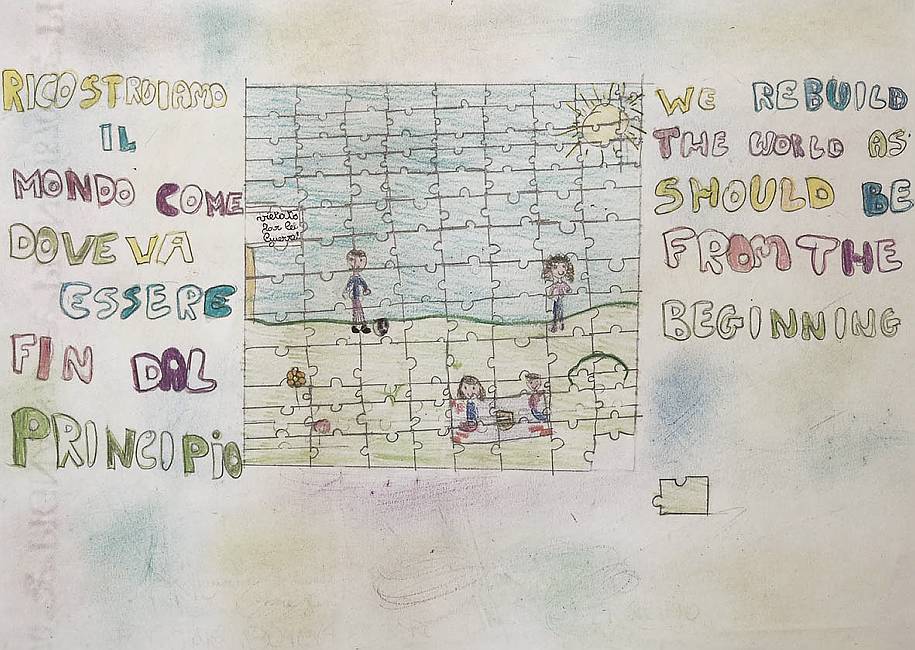 RICOSTRUIAMO
IL
MONDO COME
DOVEVA
ESSERE
FIN DAL
PRINCIPiO
vietato
far la
Guerra!
WE REBUILD
THE WORLD AS
SHOULD BE
FROM THE
BEGINNING